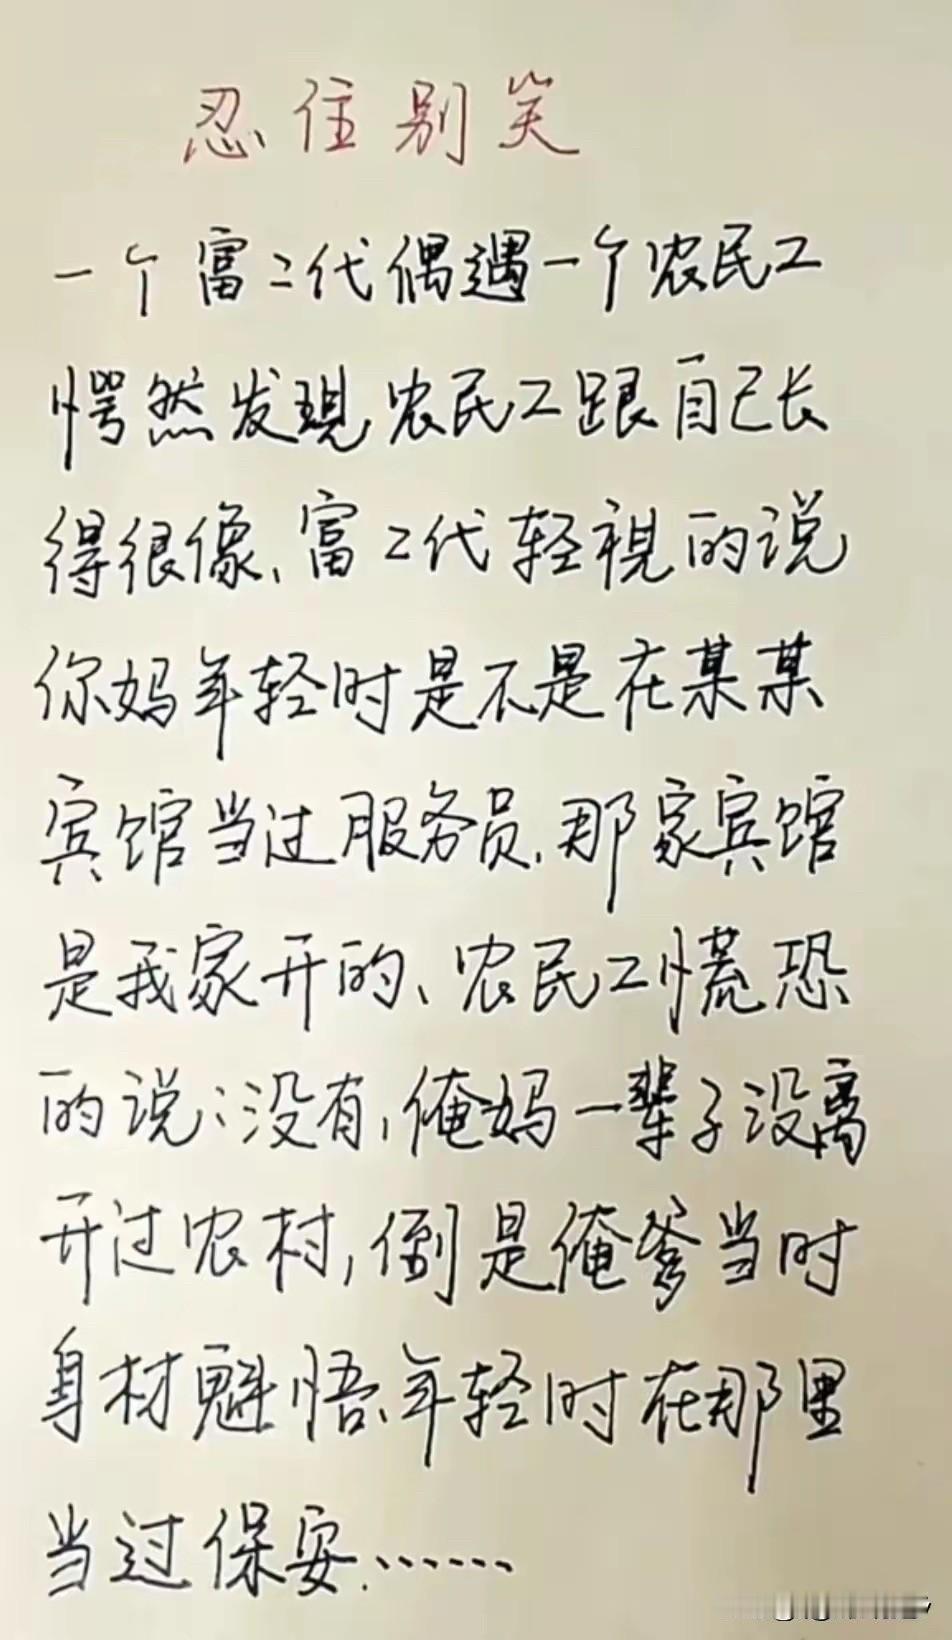 忍住别笑
一个富二代偶遇一个农民工
愕然发现农民工跟自己长
得很像、富二代轻视的说
你妈年轻时是不是在某某
宾馆当过服务员、那家宾馆
是我家开的、农民工慌恐
的说：没有，俺妈一辈子没离
开过农村，倒是俺爹当时
身材魁悟、年轻时在那里
当过保安……